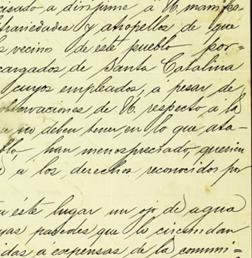 á dirijirme á V. manifes
trariedades y atropellos de que
s vecino de este pueblo por
cargados de Santa Catalina
cuyos empleados, a pesar de
servaciones de V. respecto a la
no deben tener en lo que ata
han menospreciado, querien
a los derechos reconocidos por
este lugar un ojo de agua
yas paredes que lo circundan
idas á expensas de la commi